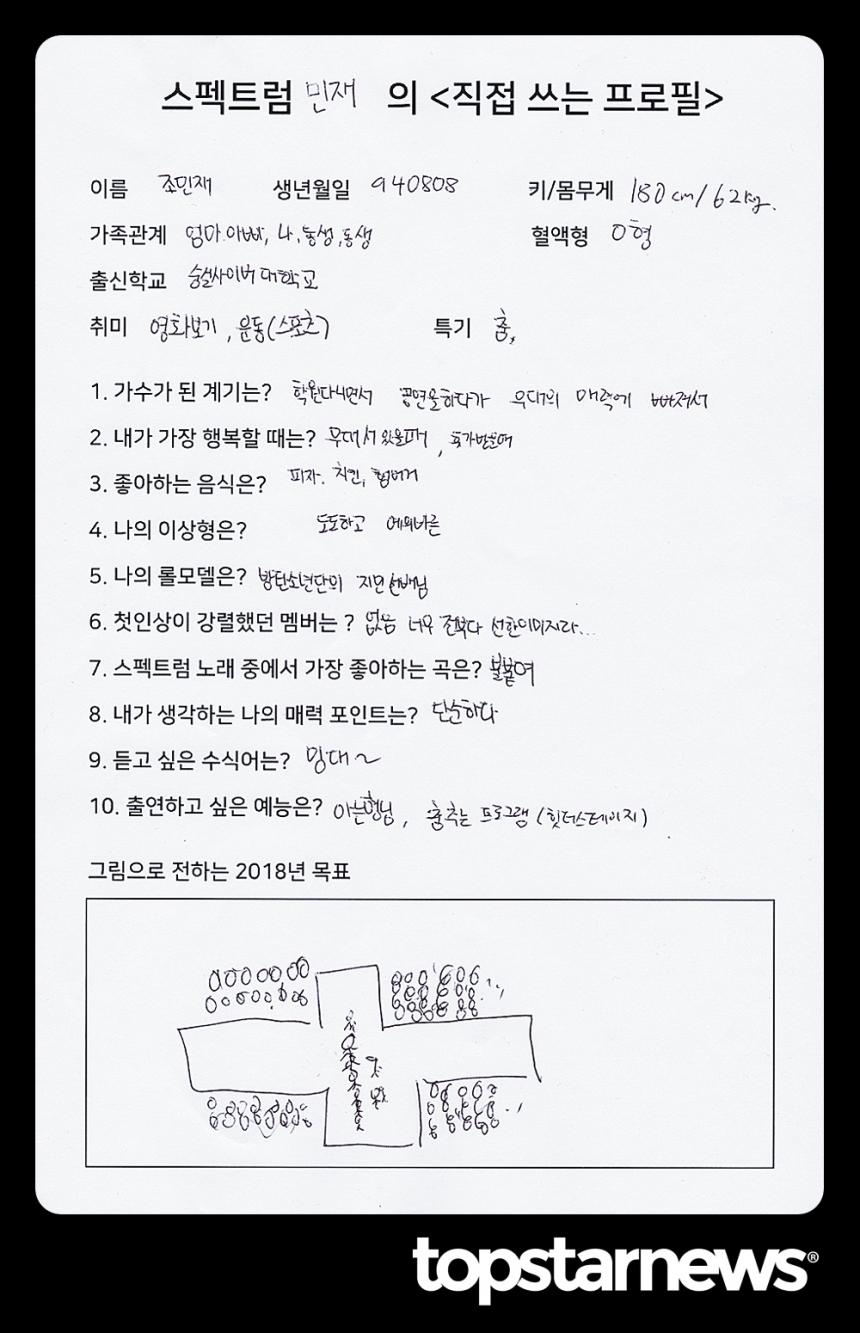 스펙트럼 민재 의 <직접 쓰는 프로필>
이름 조민재 생년월일 940808 키/몸무게 180cm/62kg.
가족관계 엄마.아빠, 나, 동생, 동생 혈액형 O형
출신학교 숭실사이버대학교
취미 영화보기, 운동(스포츠) 특기 춤,
1. 가수가 된 계기는? 학원다니면서 공연을하다가 무대의 매력에 빠져서
2. 내가 가장 행복할 때는? 무대에 서있을때, 휴가받을때
3. 좋아하는 음식은? 피자. 치킨, 햄버거
4. 나의 이상형은? 도도하고 예의바른
5. 나의 롤모델은? 방탄소년단의 지민선배님
6. 첫인상이 강렬했던 멤버는 ? 없음 너무 전부다 선한이미지라...
7. 스펙트럼 노래 중에서 가장 좋아하는 곡은? 불붙여
8. 내가 생각하는 나의 매력 포인트는? 단순하다
9. 듣고 싶은 수식어는? 밍대~
10. 출연하고 싶은 예능은? 아는형님, 춤추는 프로그램 (힛더스테이지)
그림으로 전하는 2018년 목표
topstarnews®